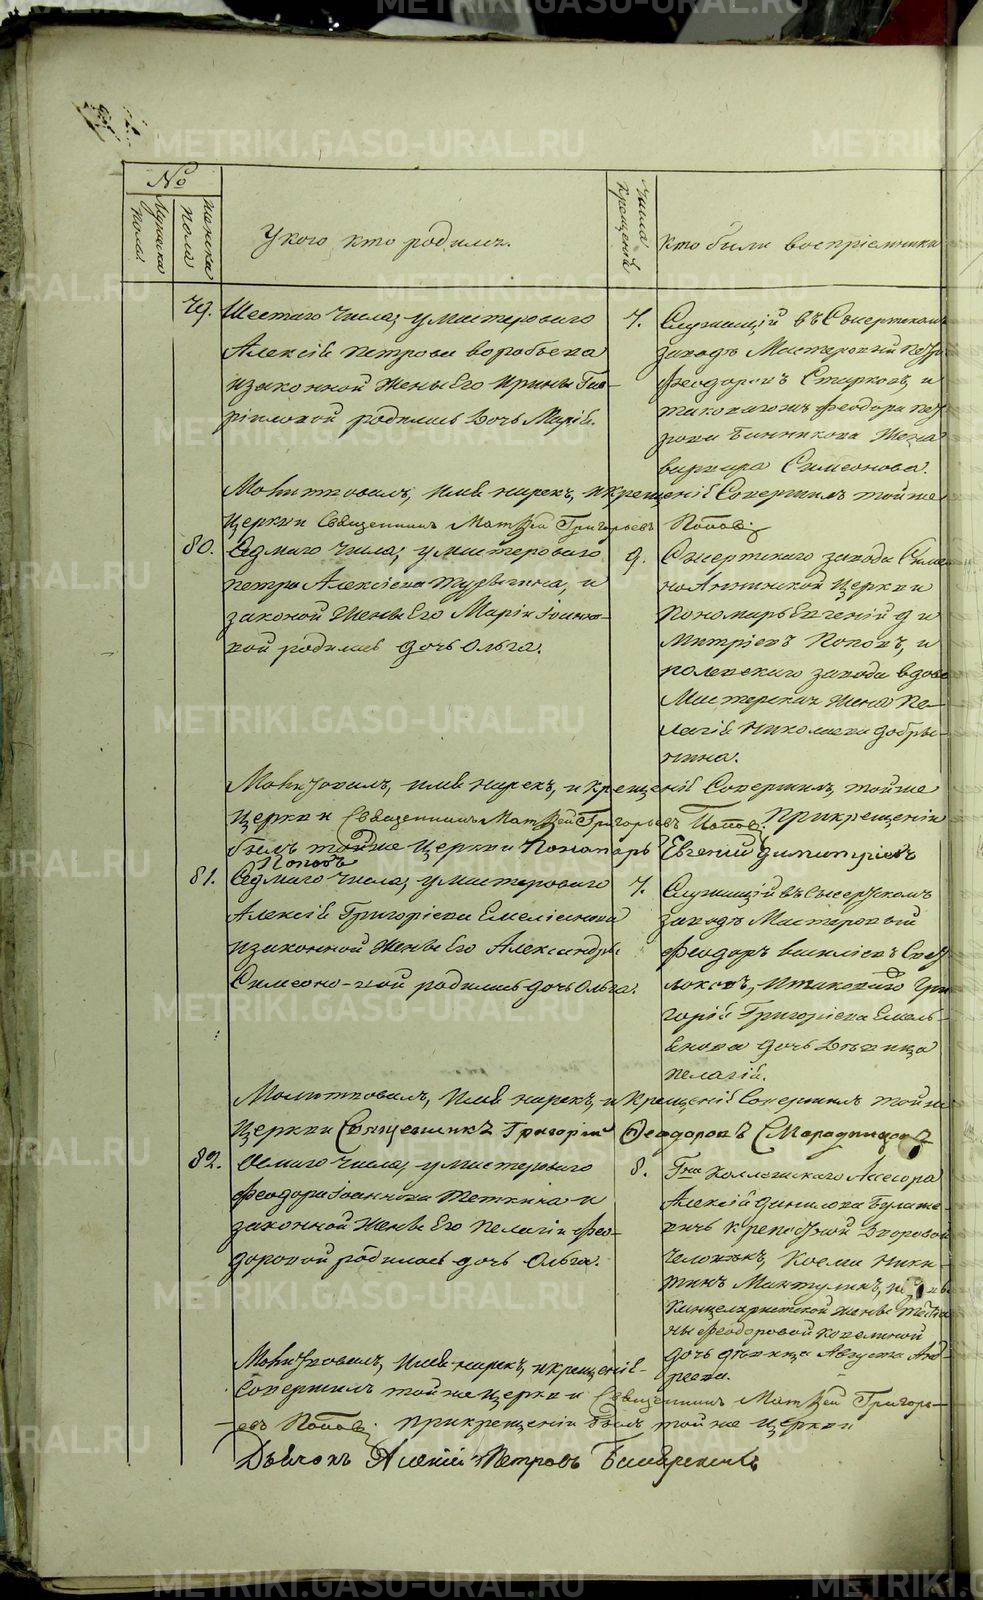 METRIKI.GASO-URAL.RU
№
Мужска пола
Женска пола
У кого, кто родилъ.
Числа Крещенiй
Кто были воспрiемники
79. Шестаго числа; у мастероваго
Алексiя Петрова Воробьева
и законной жены Его Ирины Гав-
рiиловой родилась дочь Марiя.
7. Служащiй въ Сысертскомъ
заводѣ Мастеровый Петръ
Феодоровъ Старковъ, и
таковагожъ Феодора Пет
рова Банникова жена
варвара Симеонова.
Молитвовалъ, имя нарекъ, и крещенiе Совершилъ тойже
Церкви Священникъ Матѳей Григорьевъ Поповъ
80. Седмаго числа; у мастероваго
Петра Алексiева, и
законной жены Его Марiи Iоанно-
вой родилась дочь Ольга.
9. Сысертскаго завода Симео
но Аннинской Церкви
Пономарь Евгенiй Ди
митрiевъ Поповъ, и
полевскаго завода вдова
Мастерская жена Пе-
лагiя Николаева Добры-
нина.
Молитвовалъ, имя нарекъ, и крещенiе Совершилъ, тойже
Церкви Священникъ Матѳей Григорьевъ Поповъ. При крещенiи
былъ тойже Церкви Пономарь Евгенiй Димитрiевъ
Поповъ
81. Седмаго числа; у мастероваго
Алексiя Григорiева Емелiянова
и законной жены Его Александры
Симеоно-вой родилась дочь Ольга.
7. Служащiй въ Сысертскомъ
заводѣ Мастеровый
Феодоръ Василiевъ
и таковаго Гри
горiя Григорiева Емель-
янова дочь Дѣвица
Пелагiя.
Молитвовалъ, имя нарекъ, и крещенiе Совершилъ тойже
Церкви Священникъ Григорiй Ѳеодоровъ
82. Осмаго числа; у мастероваго
Феодора Iоаннова Теткина и
законной жены Его Пелагiи Фео-
доровой родилась дочь Ольга.
8. Гна Коллежскаго Асессора
Алексiя Данилова
крепостной Дворовой
человѣкъ, Косма Ники-
тинъ
Канцеляристской жены Татiа
ны Феодоровой
дочь дѣвица Августа Анд
реева.
Молитвовалъ, имя нарекъ, и крещенiе
Совершилъ тойже церкви Священникъ Матѳей Григорь-
евъ Поповъ. При крещенiи былъ тойже Церкви
Дьячокъ Алексiй Петровъ